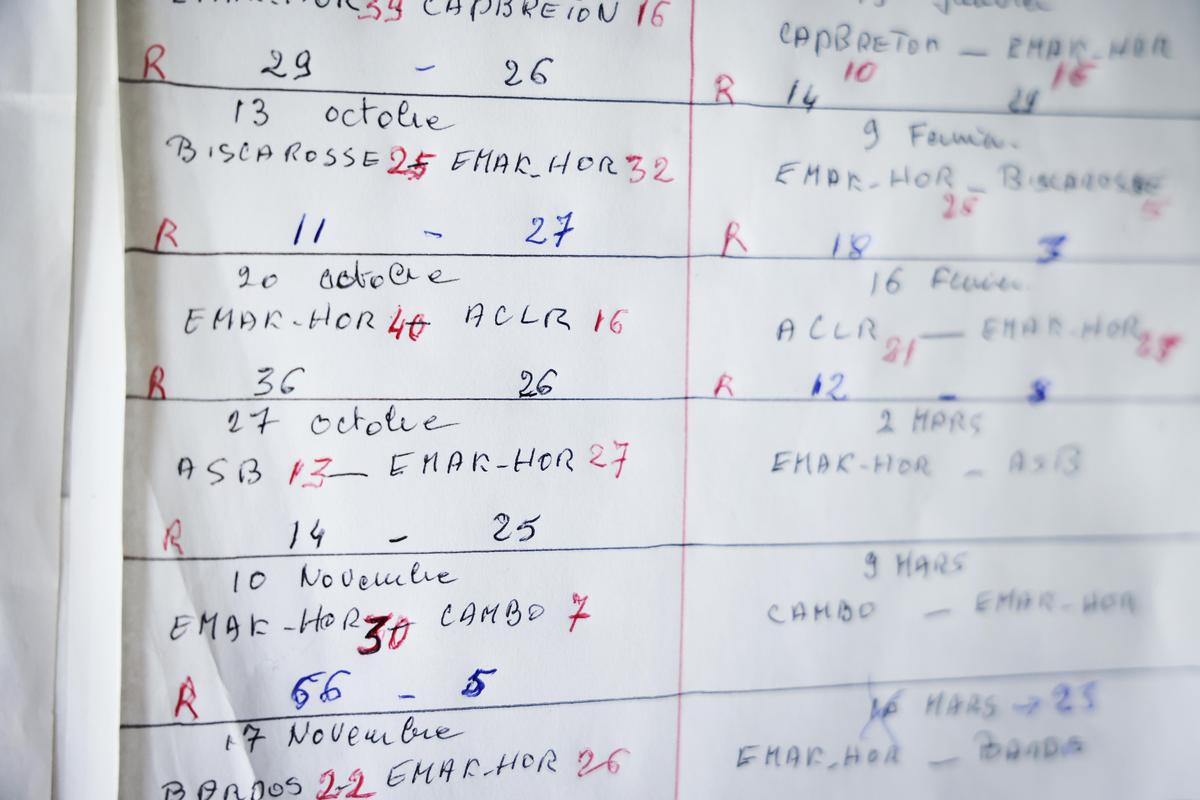 EMAK-HOR 39 CAPBRETON 16
R 29 - 26
13 octobre
BISCAROSSE 25 EMAK-HOR 32
R 11 - 27
20 octobre
EMAK-HOR 40 ACLR 16
R 36 26
27 octobre
ASB 13 — EMAK-HOR 27
R 14 - 25
10 Novembre
EMAK-HOR 30 CAMBO 7
R 66 - 5
17 Novembre
BARDOS 22 EMAK-HOR 26
CAPBRETON — EMAK-HOR
10 16
R 14 29
9 Fevrier.
EMAK-HOR - BISCAROSSE
25 5
R 18 3
16 Fevrier
ACLR 21 — EMAK-HOR
R 12 - 8
2 MARS
EMAK-HOR - ASB
9 MARS
CAMBO — EMAK-HOR
16 MARS → 23
EMAK-HOR - BARDOS